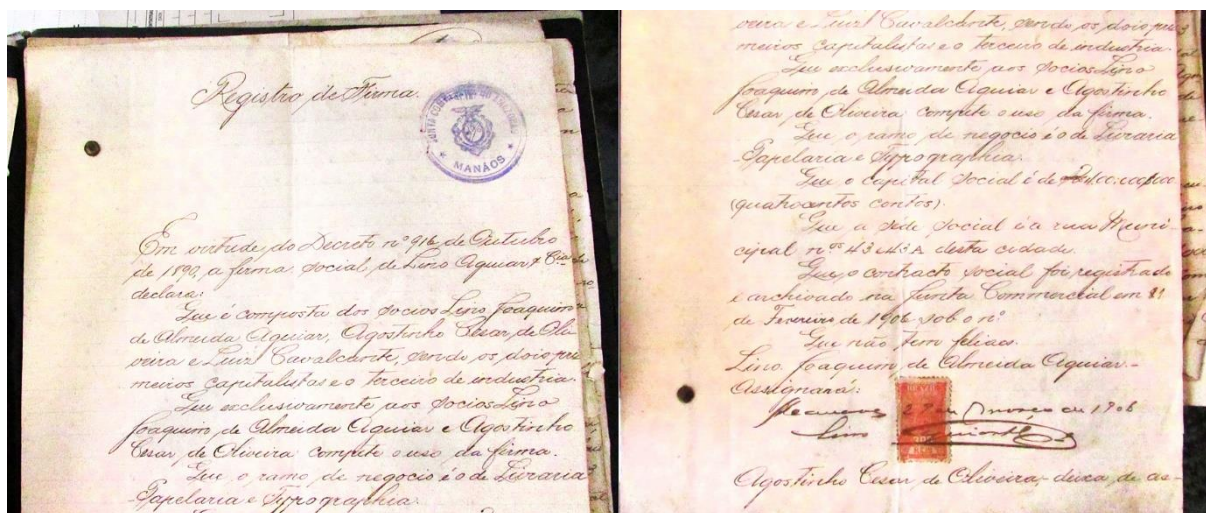 Registro de Firma.
JUNTA COMMERCIAL
MANÁOS
Em virtude do Decreto nº 916 de Outubro
de 1890, a firma social de Lino Aguiar & Cia
declara:
Que é composta dos socios Lino Joaquim
de Almeida Aguiar, Agostinho Cesar de Oli-
veira e Luiz Cavalcante, sendo os dois pri-
meiros capitalistas e o terceiro de industria.
Que exclusivamente aos socios Lino
Joaquim de Almeida Aguiar e Agostinho
Cesar de Oliveira compete o uso da firma.
Que o ramo de negocio é o de Livraria
Papelaria e Typographia.
veira e Luiz Cavalcante, sendo os dois pri-
meiros capitalistas e o terceiro de industria.
Que exclusivamente aos socios Lino
Joaquim de Almeida Aguiar e Agostinho
Cesar de Oliveira compete o uso da firma.
Que o ramo de negocio é o de Livraria
Papelaria e Typographia.
Que o capital social é de 400.000$000
(quatrocentos contos).
Que a séde social é a rua Muni-
cipal nos 43 e 43A desta cidade.
Que o contracto social foi registrado
e archivado na Junta Commercial em
de Fevereiro de 1906 sob o nº
Que não tem filiaes.
Lino Joaquim de Almeida Aguiar -
Assignará:
BRAZIL
300
REIS
Manáos 29 de Março de 1906
Lino
Agostinho Cesar de Oliveira - deixa de as-